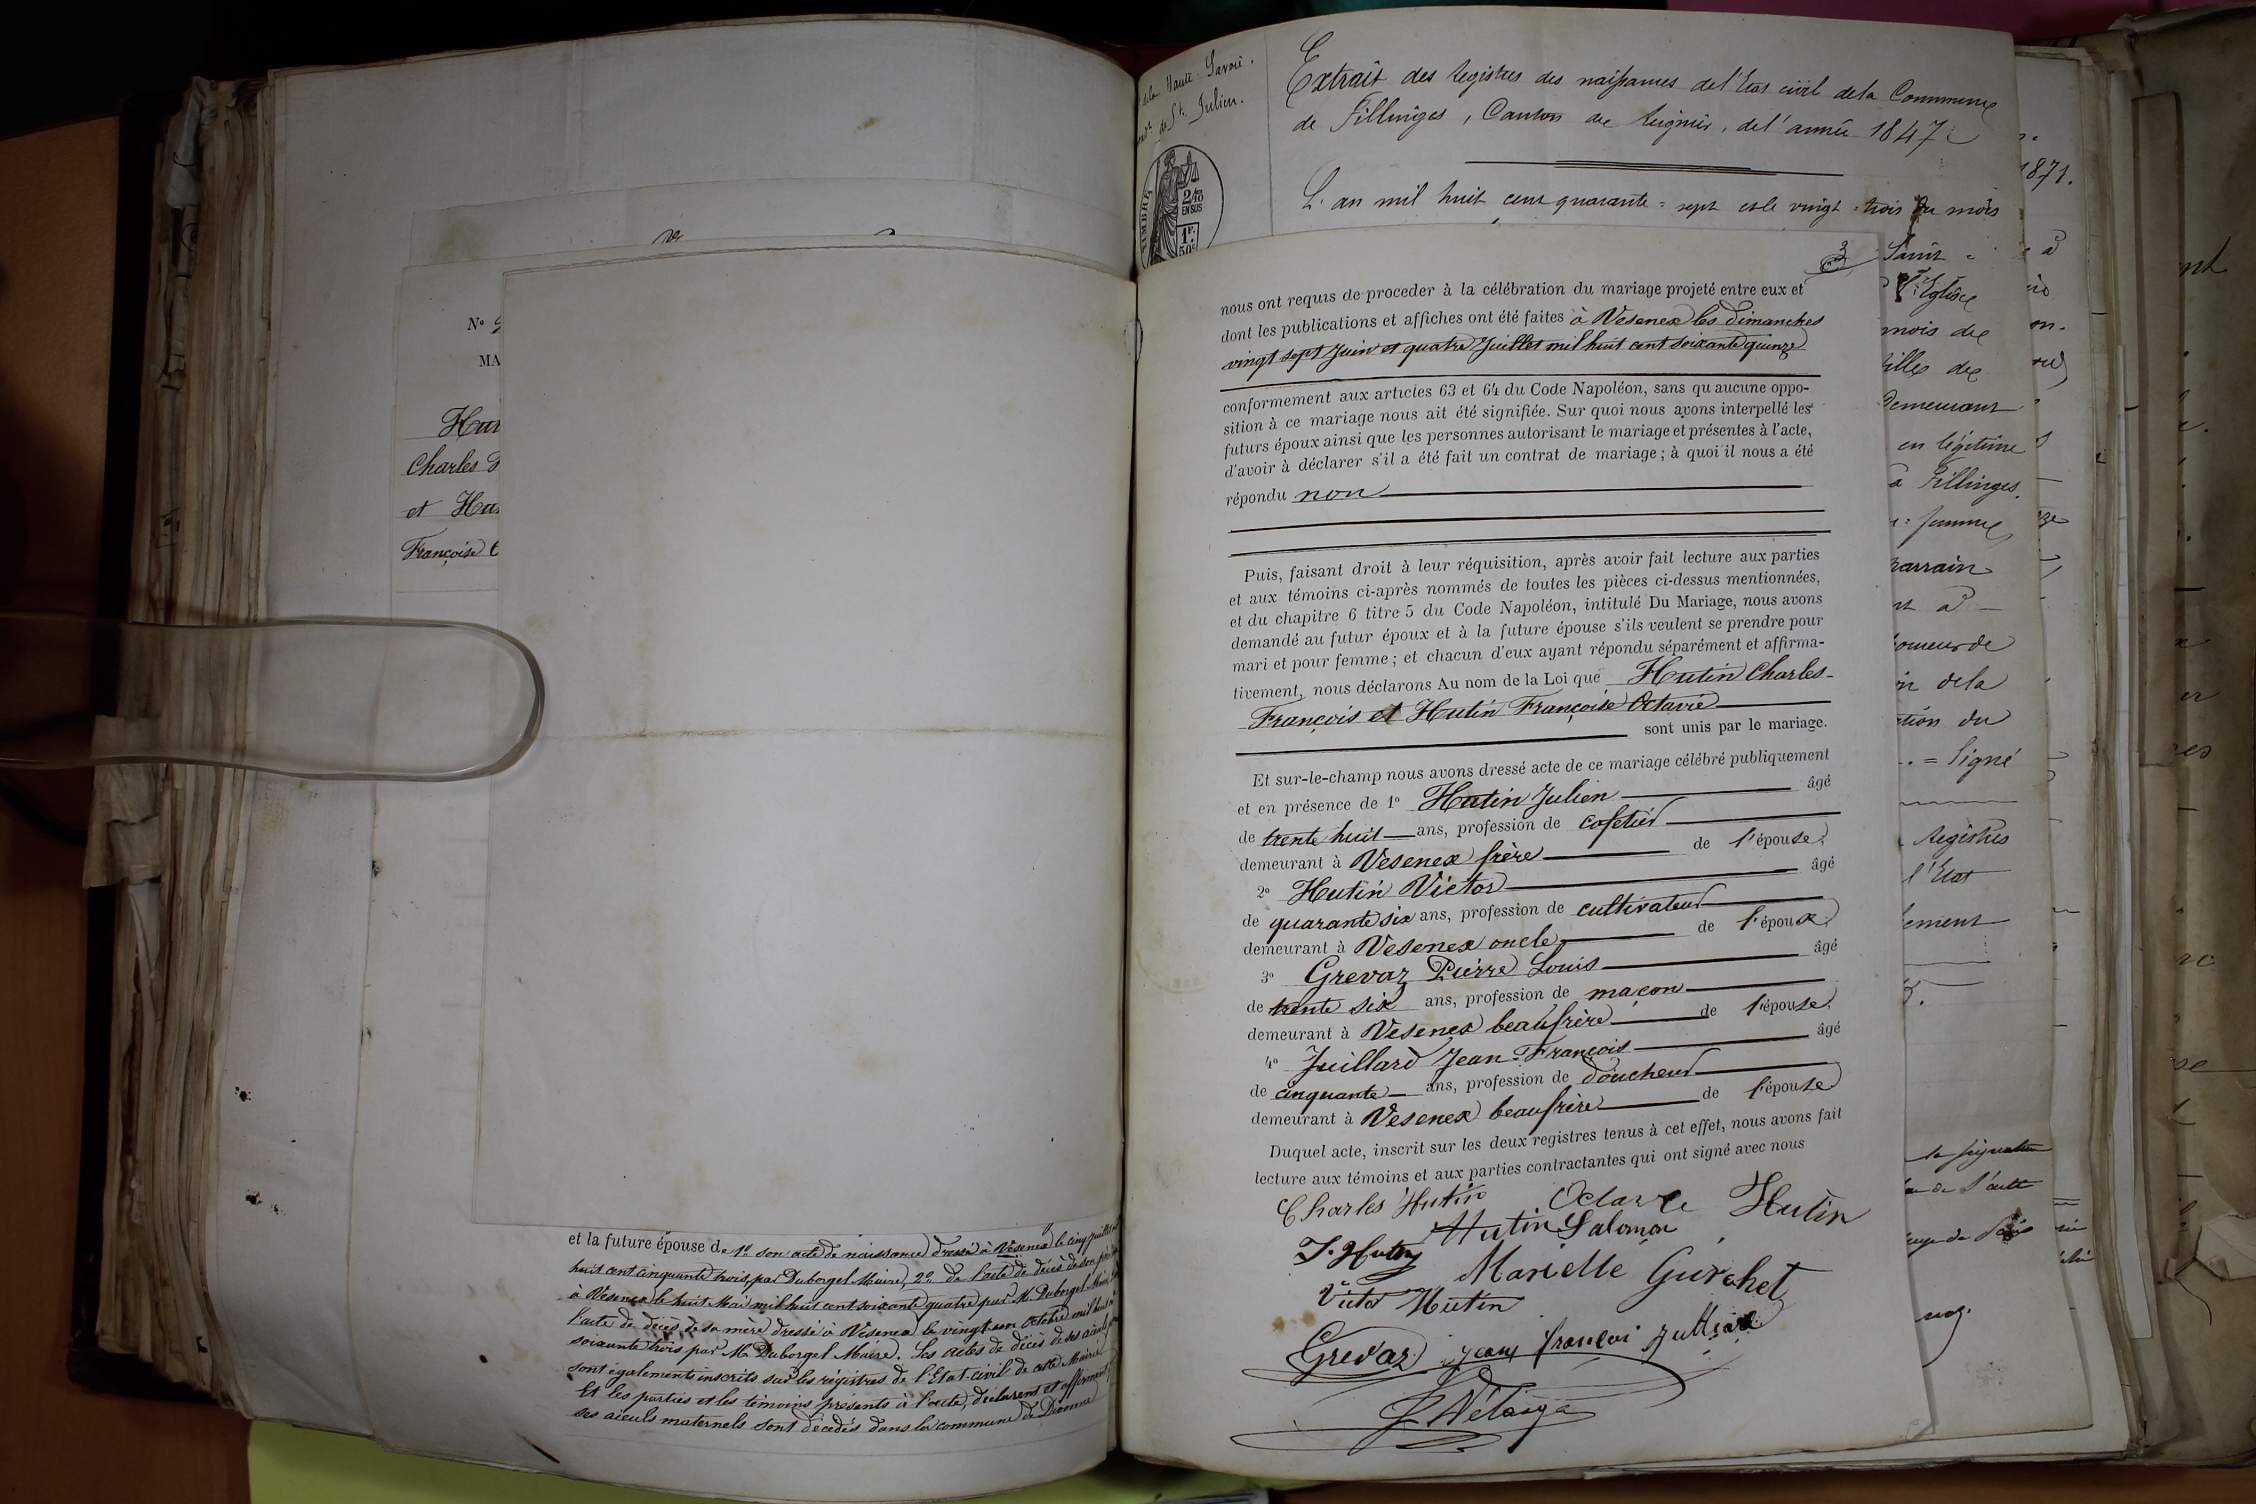 N°
MA
Hu
Charles
et Hu
Françoise
et la future épouse de 1° son acte de naissance dressé à Vesenex le cinq juillet
huit cent cinquante trois par Duborgel Maire, 2° de l'acte de décès de son père
à Vesenex le huit Mai mil huit cent soixante quatre par M. Duborgel Maire
l'acte de décès de sa mère dressé à Vesenex le vingt un Octobre mil huit
soixante trois par M. Duborgel Maire. Les actes de décès de ses aïeuls
sont également inscrits sur les registres de l'Etat-civil de cette Mairie
Et les parties et les témoins présents à l'acte, déclarent et affirment
ses aïeuls maternels sont décédés dans la commune de Divonne
de la Haute Savoie.
de St. Julien.
TIMBRE
2/10
EN SUS
1F.
50c
Extrait des Registres des naissances de l'Etat civil de la Commune
de Fillinges, Canton de Reignier, de l'année 1847
L'an mil huit cent quarante = sept et le vingt = trois du mois
3
nous ont requis de proceder à la célébration du mariage projeté entre eux et
dont les publications et affiches ont été faites à Vesenex les dimanches
vingt sept Juin et quatre Juillet mil huit cent soixante quinze
conformement aux articles 63 et 64 du Code Napoléon, sans qu'aucune oppo-
sition à ce mariage nous ait été signifiée. Sur quoi nous avons interpellé les
futurs époux ainsi que les personnes autorisant le mariage et présentes à l'acte,
d'avoir à déclarer s'il a été fait un contrat de mariage ; à quoi il nous a été
répondu non
Puis, faisant droit à leur réquisition, après avoir fait lecture aux parties
et aux témoins ci-après nommés de toutes les pièces ci-dessus mentionnées,
et du chapitre 6 titre 5 du Code Napoléon, intitulé Du Mariage, nous avons
demandé au futur époux et à la future épouse s'ils veulent se prendre pour
mari et pour femme ; et chacun d'eux ayant répondu séparément et affirma-
tivement, nous déclarons Au nom de la Loi que Hutin Charles-
François et Hutin Françoise Octavie
sont unis par le mariage.
Et sur-le-champ nous avons dressé acte de ce mariage célébré publiquement
et en présence de 1° Hutin Julien âgé
de trente huit ans, profession de cafetier
demeurant à Vesenex frère de l'épouse
2° Hutin Victor âgé
de quarante six ans, profession de cultivateur
demeurant à Vesenex oncle de l'époux
3° Grevaz Pierre Louis âgé
de trente six ans, profession de maçon
demeurant à Vesenex beaufrère de l'épouse
4° Juillard Jean-François âgé
de cinquante ans, profession de doucheur
demeurant à Vesenex beaufrère de l'épouse
Duquel acte, inscrit sur les deux registres tenus à cet effet, nous avons fait
lecture aux témoins et aux parties contractantes qui ont signé avec nous
Charles Hutin Octavie Hutin
Hutin Salomon
J. Hutin
Marielle Gurchet
Victor Hutin
Grevaz jean françoi
1871.
Saint
l'Eglise
mois de
filles de
Demeurant
en légitime
à Fillinges.
femme
parrain
de la
du
= Signé
Registres
l'Etat
la signature